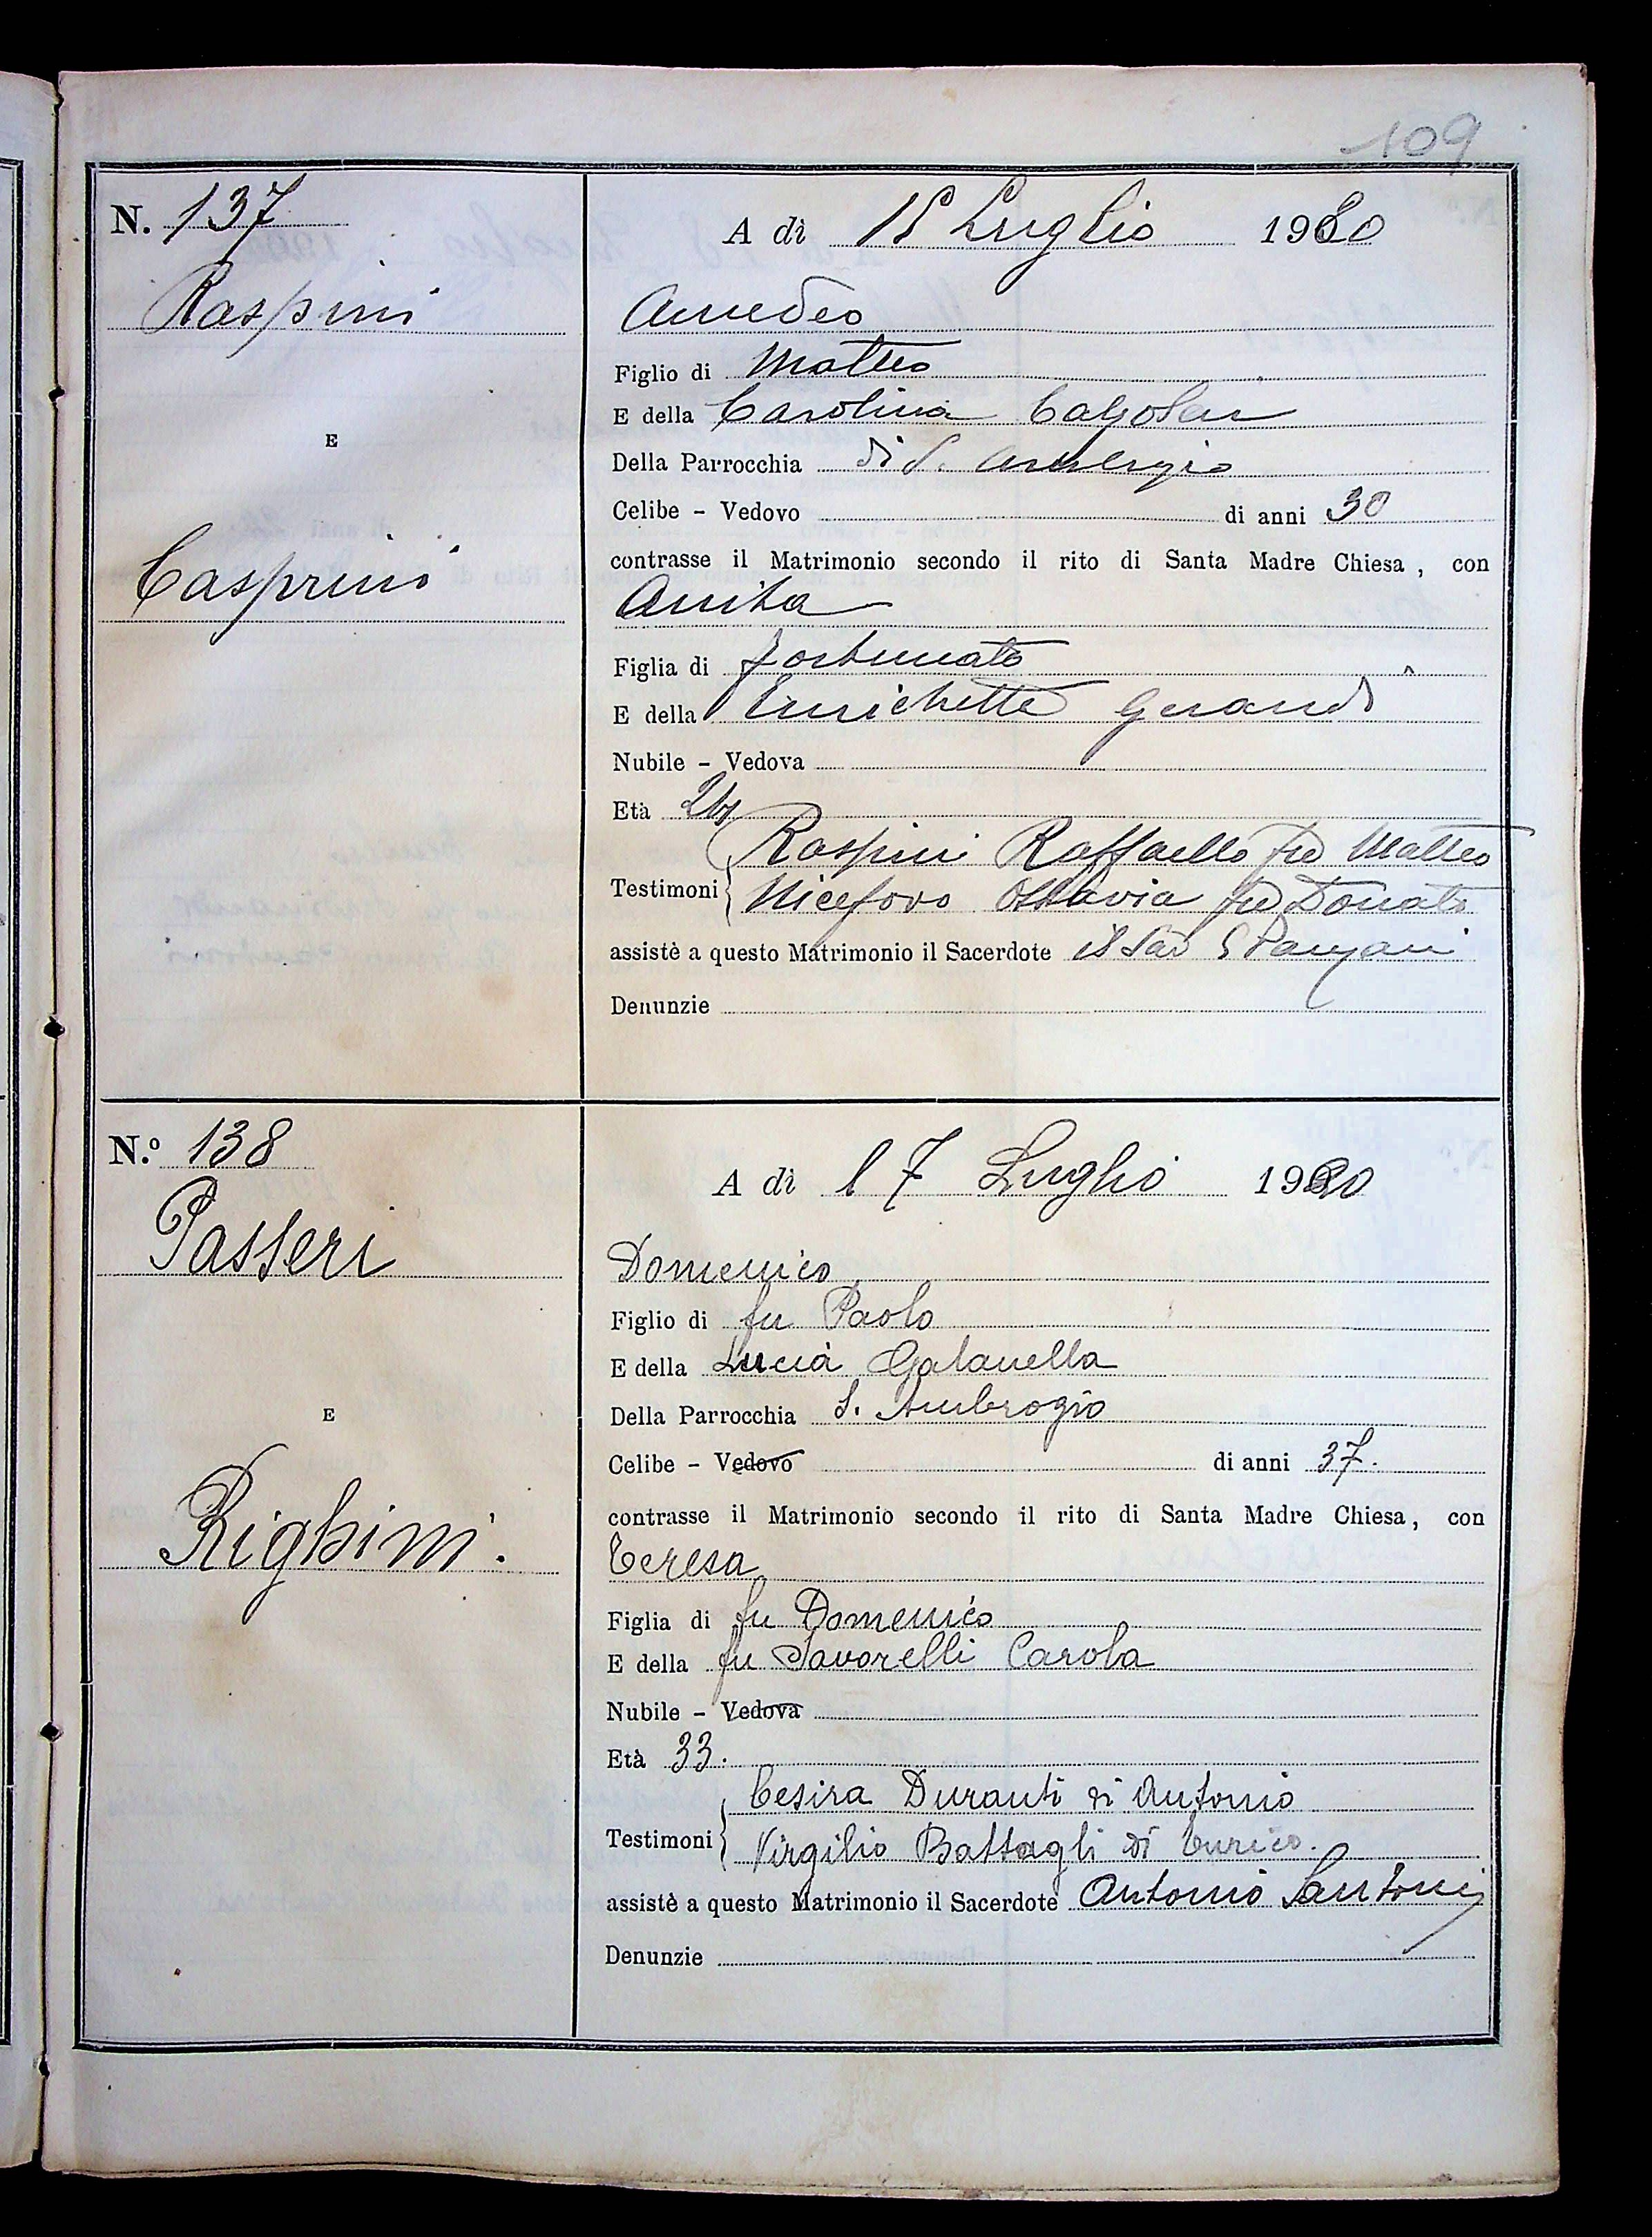 109
N. 137
A dì 15 Luglio 1920
Raspini
Amedeo
Figlio di Matteo
E della Carolina Calzolari
E
Della Parrocchia di S. Ambrogio
Celibe - Vedovo di anni 30
contrasse il Matrimonio secondo il rito di Santa Madre Chiesa, con
Casprini
Anita
Figlia di Fortunato
E della Enrichetta
Nubile - Vedova
Età
Raspini Raffaello fu Matteo
Testimoni
Niceforo Ottavia fu Donato
assistè a questo Matrimonio il Sacerdote il Sac
Denunzie
N.º 138
A dì 17 Luglio 1920
Passeri
Domenico
Figlio di fu Paolo
E della Lucia Galanella
E
Della Parrocchia S. Ambrogio
Celibe - Vedovo di anni 37.
contrasse il Matrimonio secondo il rito di Santa Madre Chiesa, con
Righini.
Teresa
Figlia di fu Domenico
E della fu Savorelli Carola
Nubile - Vedova
Età 33.
Cesira Duranti di Antonio
Testimoni
Virgilio Battagli di Enrico.
assistè a questo Matrimonio il Sacerdote Antonio Santoni
Denunzie